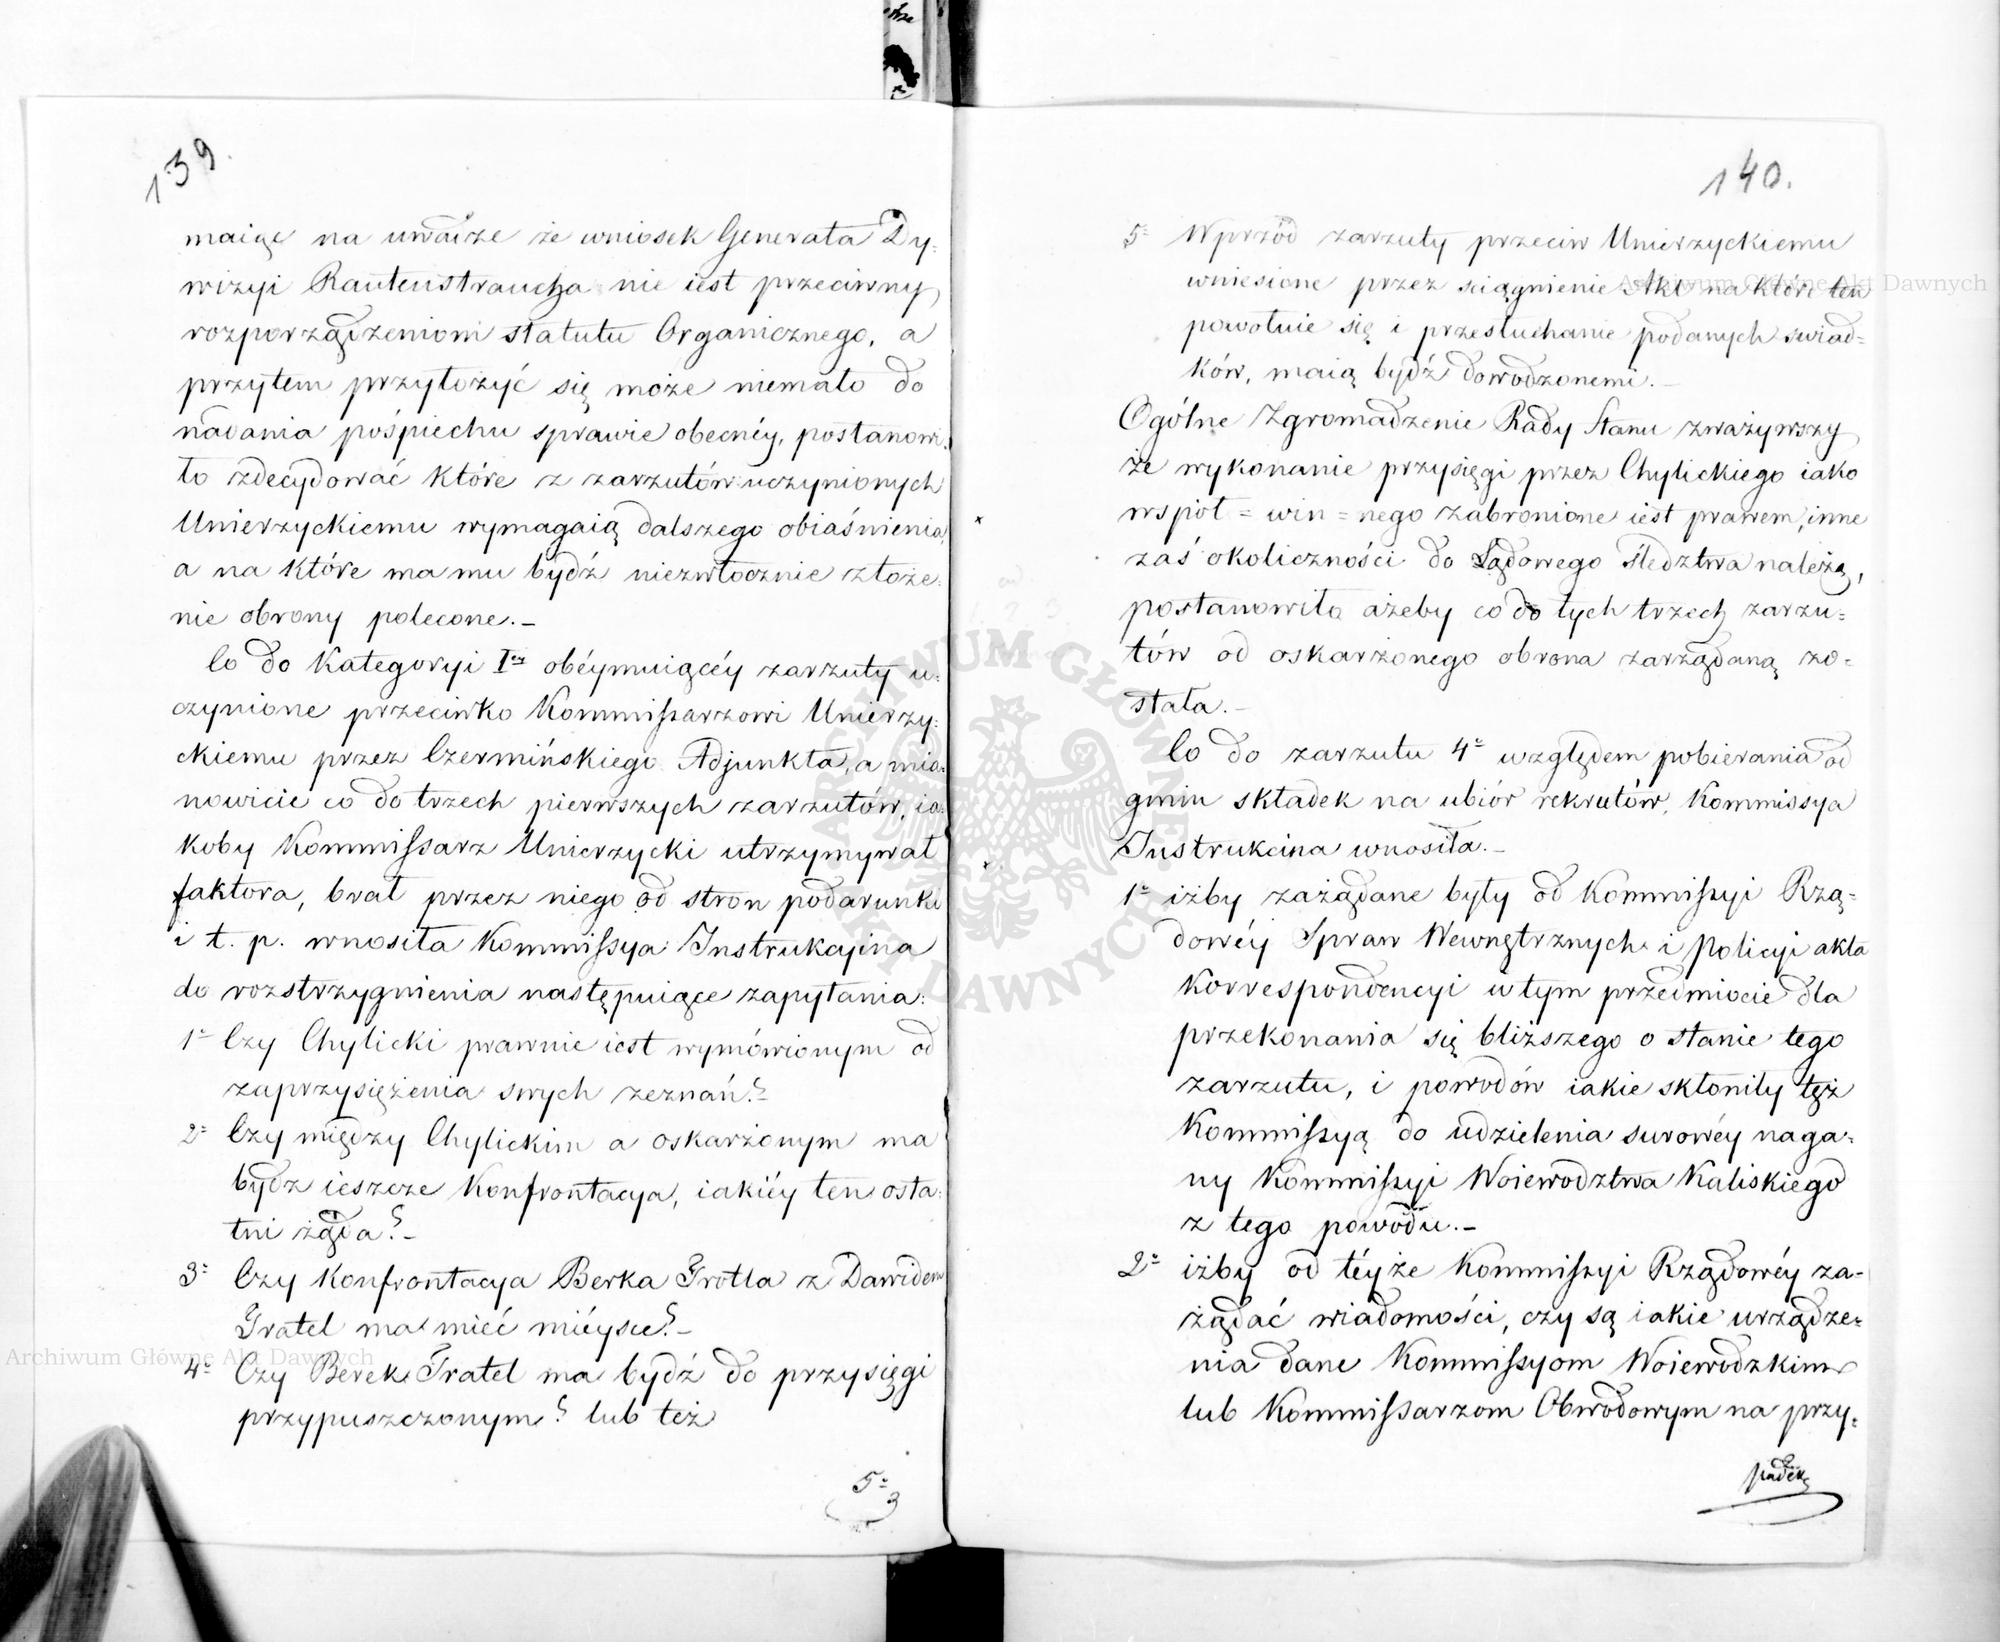 139.
maiąc na uwadze że wniosek Generała Dy-
wizyi Rautenstraucha nie iest przeciwny
rozporządzeniom statutu Organicznego, a
przytem przyłożyć się może niemało do
nadania pośpiechu sprawie obecnéy, postanowi-
ło zdecydować które z zarzutów uczynionych
Unierzyckiemu wymagaią dalszego obiaśnienia,
a na które ma mu bydź niezwłocznie złoże-
nie obrony polecone.–
Co do Kategoryi Iey obéymuiącéy zarzuty u-
czynione przeciwko Kommissarzowi Unierzy-
ckiemu przez Czermińskiego Adjunkta, a mia-
nowicie co do trzech pierwszych zarzutów, ia-
koby Kommissarz Unierzycki utrzymywał
faktora, brał przez niego od stron podarunki
i t. p. wnosiła Kommissya Instrukcyina
do rozstrzygnienia następuiące zapytania:
1° Czy Chylicki prawnie iest wymówionym od
zaprzysiężenia swych zeznań?–
2° Czy między Chylickim a oskarżonym ma
bydz ieszcze Konfrontacya, iakiéy ten osta-
tni żąda?–
3° Czy Konfrontacya Berka Trotla z Dawidem
Tratel ma mieć miéysce?–
4° Czy Berek Tratel ma bydź do przysięgi
przypuszczonym? lub też
5°
140.
5° Wprzód zarzuty przeciw Unierzyckiemu
wniesione przez sciągnienie Akt na które ten
powołuie się i przesłuchanie podanych swiad-
ków, maią bydź dowodzonemi.–
Ogólne Zgromadzenie Rady Stanu zważywszy
że wykonanie przysięgi przez Chylickiego iako
wspoł = win = nego zabronione iest prawem, inne
zaś okoliczności do Sądowego śledztwa należą,
postanowiło ażeby co do tych trzech zarzu-
tów od oskarżonego obrona zarządaną zo-
stała.–
Co do zarzutu 4° względem pobierania od
gmin składek na ubiór rekrutów, Kommissya
Instrukcina wnosiła.–
1° iżby zażądane były od Kommissyi Rzą-
dowéy Spraw Wewnętrznych i Policyi akta
Korrespondencyi w tym przedmiocie dla
przekonania się bliższego o stanie tego
zarzutu, i powodów iakie skłoniły też
Kommissyą do udzielenia surowéy naga-
ny Kommissyi Woiewodztwa Kaliskiego
z tego powodu.–
2° iżby od téyże Kommissyi Rządowéy za-
żądać wiadomości, czy są iakie urządze-
nia dane Kommissyom Woiewodzkim
lub Kommissarzom Obwodowym na przy-
padek
Archiwum Główne Akt Dawnych
Archiwum Główne Akt Dawnych
ARCHIWUM GŁÓWNE AKT DAWNYCH